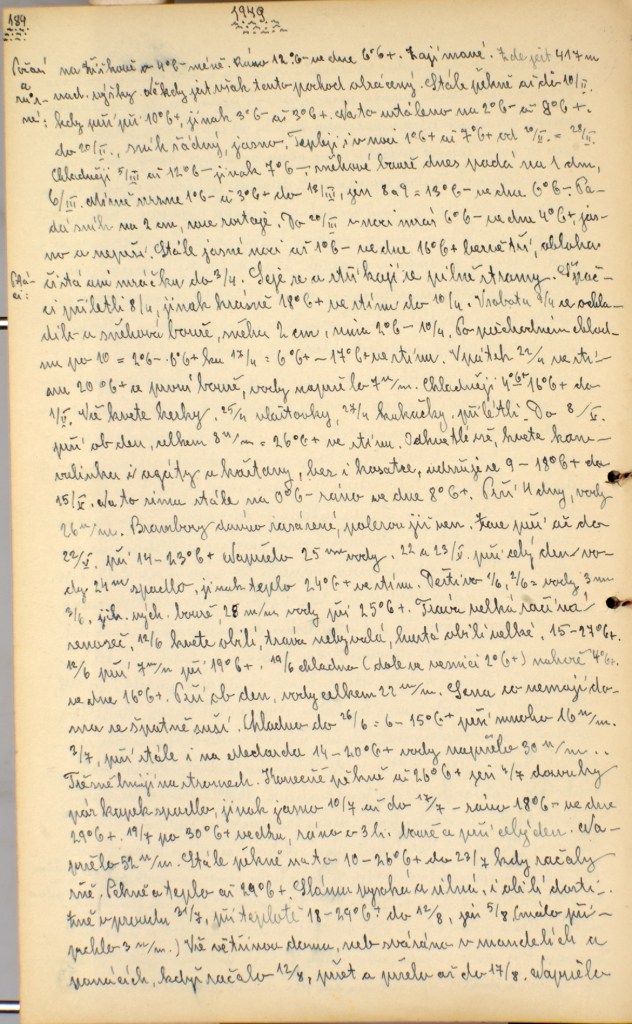 189
1949
Počasí na Žižkově o 4°C- méně. Ráno 12°C- ve dne 6°C+. Zajímavé. Zde jest 417 m
a nad. výšky někdy jest však tento pochod obrácený. Stále pěkně až do 10/II.
různé: kdy prší při 10°C+, jinak 3°C- až 3°C+. Na to ustáleno na 2°C- až 8°C+.
do 20/II., sníh žádný, jasno. Tepleji i v noci 1°C+ až 7°C+ od 20/II. = 28/II.
Chladněji 5/III až 12°C- jinak 7°C-, sněhové bouře dnes padá na 1 dm,
6/III. Mírně mrzne 1°C- až 3°C+ do 18/III, jen 8 a 9 = 13°C- ve dne 6°C-. Pa-
dá sníh na 2 cm, více roztaje. Do 20/III v noci mráz 6°C- ve dne 4°C+, jas-
no a neprší. Stále jasné noci až 1°C- ve dne 16°C+ obloha
Ptá- čistá ani mráčku do 3/4. Seje se a stříkají se pilně stromy. Špač-
ci: ci přiletli 8/4, jinak krásně 18°C+ ve stínu do 10/4. V sobotu 9/4 se ochla-
dilo a sněhová bouře, sněhu 2 cm, 2°C- 10/4. Po přechodném chlad-
nu po 10 = 2°C- 6°C+ ku 17/4 = 6°C+ - 17°C+ ve stínu. V pátek 22/4 ve stí-
nu 20°C+ a první bouře, vody napršelo 7 m/m. Chladněji 4°C+ 16°C+ do
1/V. Vše kvete keřky. 25/4 vlaštovky, 27/4 kukačky přilétli. Do 8/V.
prší ob den, celkem 8 m/m = 26°C+ ve stínu. Odkvetlé vše, kveta kon-
valinka i agáty a kaštany, bez i kosatce, udržuje se 9 - 18°C+ do
15/V. Na to zima stále na 0°C- ráno ve dne 8°C+. Prší 4 dny, vody
26 m/m. Brambory dávno zasázené, polezou již ven. Zase prší až do
22/V. při 14-23°C+ Napršelo 25 mm vody. 22 a 23/V. prší celý den vo-
dy 24 m spadlo, jinak teplo 24°C+ ve stínu. Deštivo 1/6, 2/6 = vody 3 mm
3/6, jih. vých. bouře, 28 m/m vody při 25°C+. Tráva velká začíná
senoseč, 12/6 kvete obilí, tráva nebývalá, hustá obilí velké, 15-27°C+.
18/6 prší 7 m/m při 19°C+. 19/6 chladno (dole ve vesnici 2°C+) nahoře 4°C+.
ve dne 16°C+. Prší ob den, vody celkem 22 m/m. Sena co nemají do-
ma se špatně suší. Chladno do 26/6 = 6 - 15°C+ prší mnoho 16 m/m.
2/7, prší stále i na Medarda 14-20°C+ vody napršelo 30 m/m..
Třešně hnijí na stromech. Konečně pěkně až 26°C+ jen 3/7
pár kapek spadlo, jinak jasno 10/7 až do 17/7 - ráno 18°C- ve dne
29°C+. 19/7 po 30°C+ vedku, ráno o 3 h. bouře a prší celý den. Na-
pršelo 52 m/m. Stále pěkně na to 10-26°C+ do 23/7 kdy začaly
žně. Pekně a teplo až 29°C+. Sláma vysoká a silná, i obilí dosti.
Žně v proudu 31/7, při teplotě 18-29°C+ do 12/8, jen 5/8 (málo při-
prchlo 3 m/m.) Vše většinou doma, neb svázáno v mandelích a
panácích, když začalo 12/8, pršet a pršelo až do 17/8. Napršelo